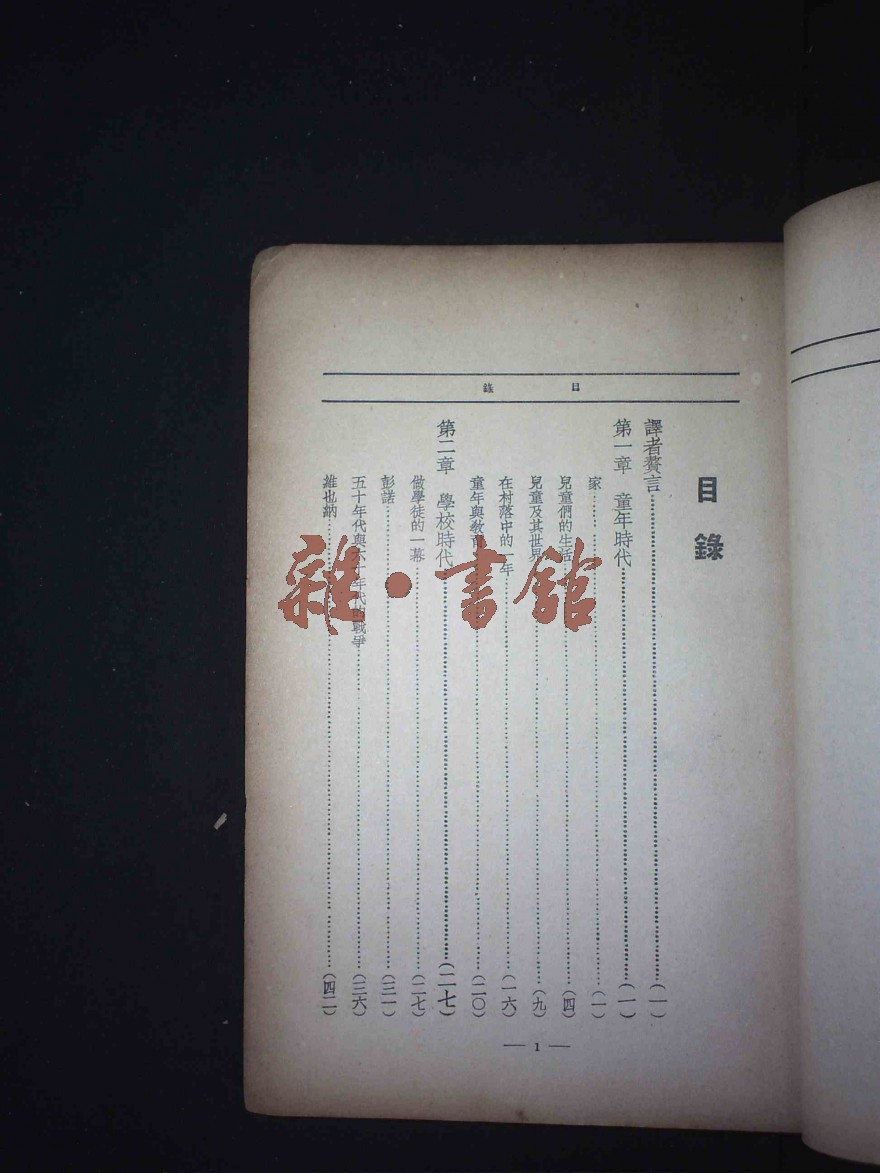 目錄
目錄
譯者贅言……(一)
第一章 童年時代……(一)
家……(一)
兒童們的生活……(四)
兒童及其世界……(九)
在村落中的一年……(一六)
童年與教育……(二〇)
第二章 學校時代……(二七)
做學徒的一幕……(二七)
彭諾……(三一)
五十年代與六十年代的戰爭……(三六)
維也納……(四二)
— 1 —
雜·書館